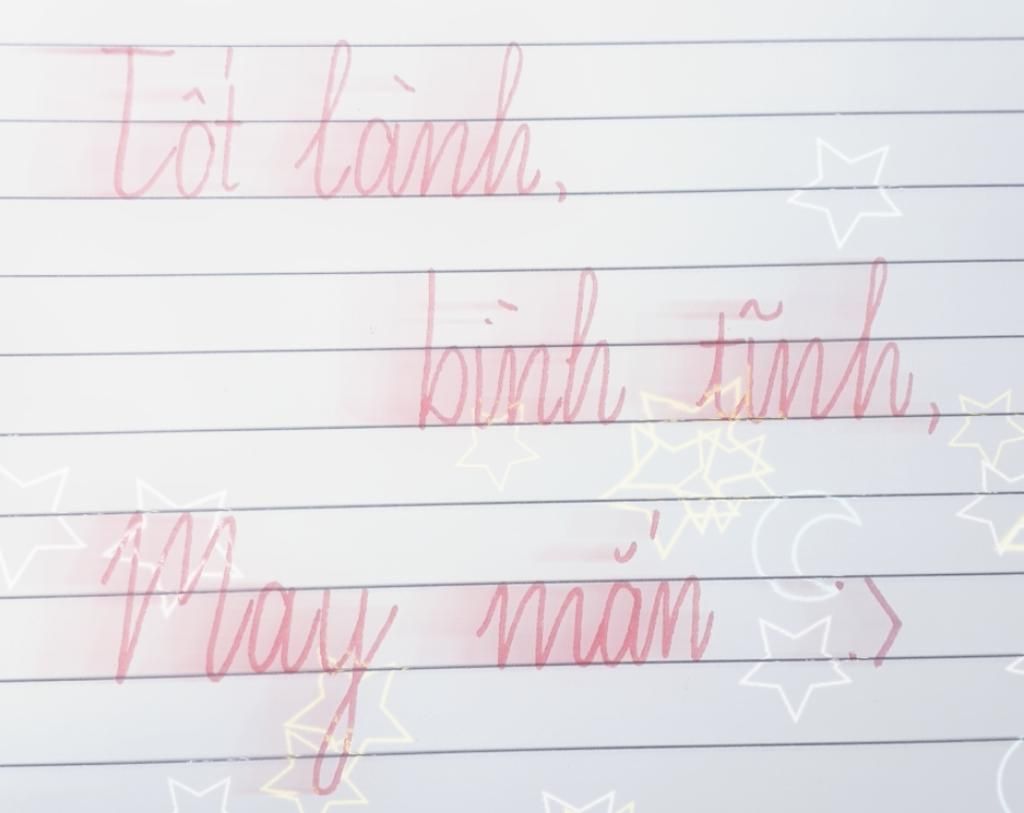 Tốt lành,
bình tĩnh,
May mắn :>